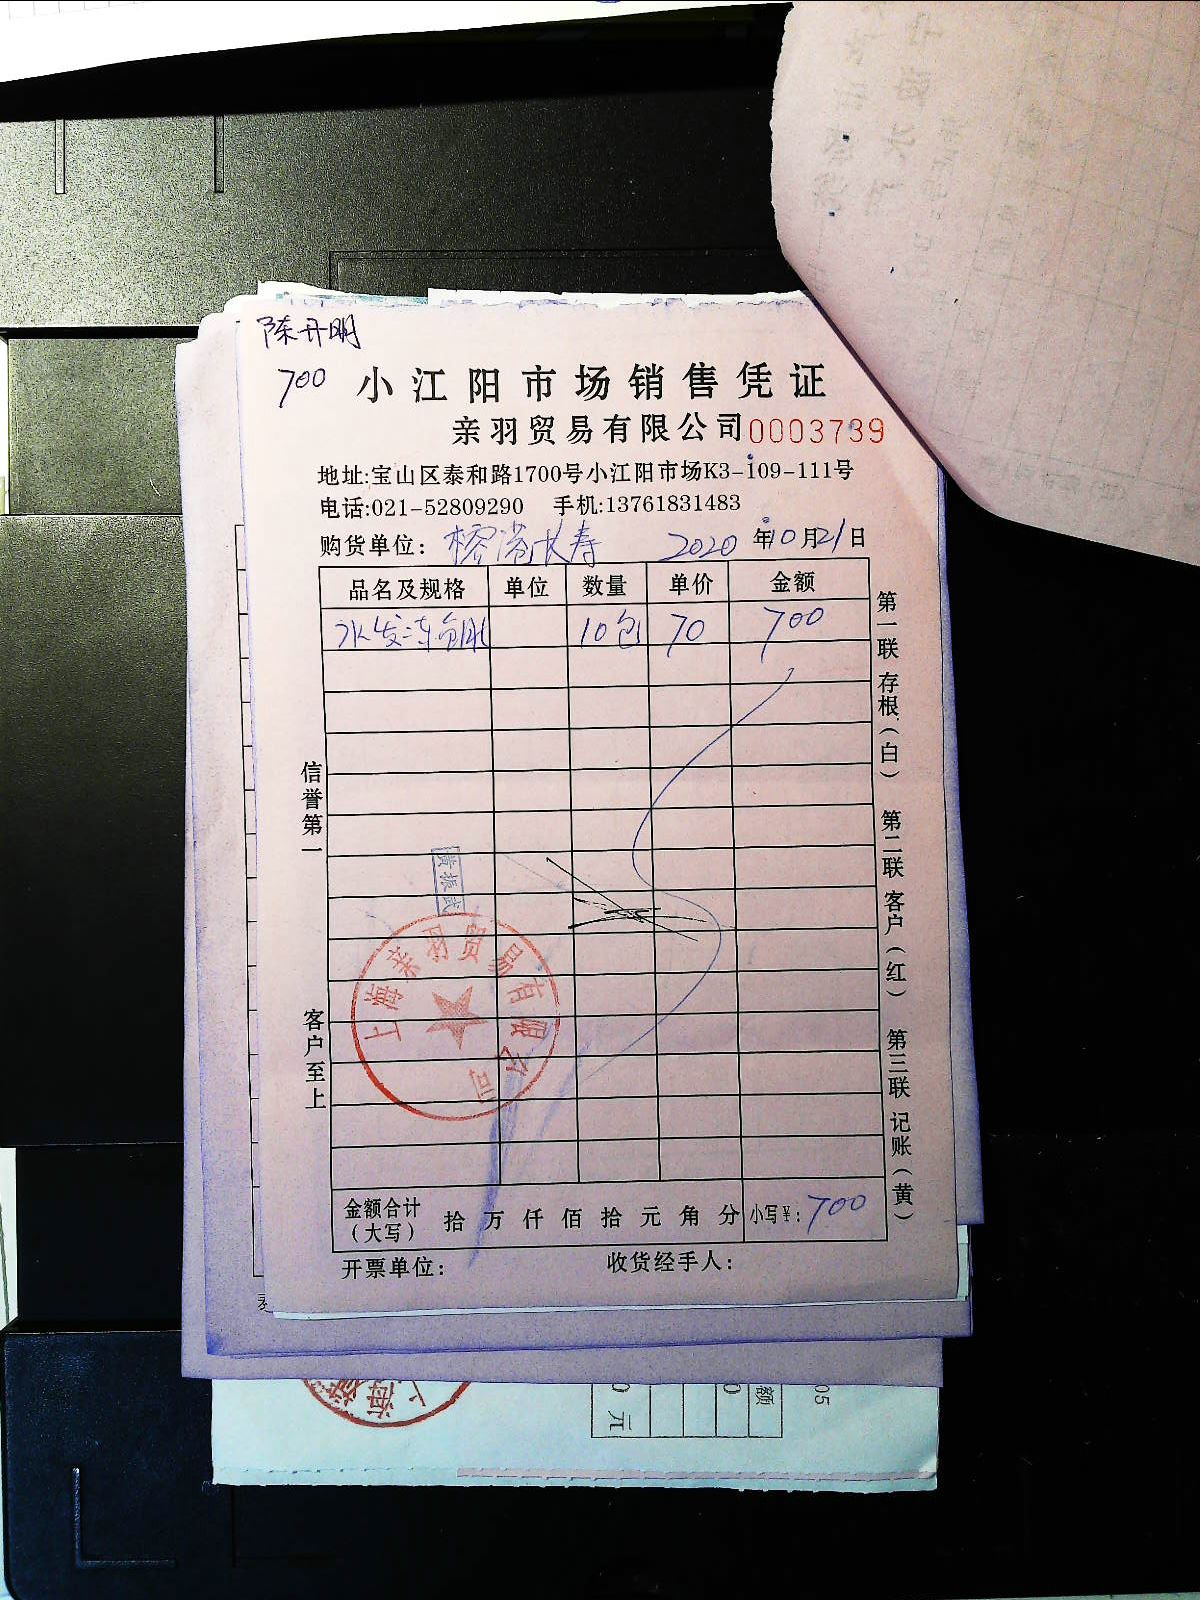 陈开明
700
小江阳市场销售凭证
亲羽贸易有限公司 0003739
地址:宝山区泰和路1700号小江阳市场K3-109-111号
电话:021-52809290 手机:13761831483
购货单位: 榕港长寿 2020 年10月21日
品名及规格 单位 数量 单价 金额
水发冻鱼肚 10包 70 700
信誉第一
客户至上
第一联 存根(白) 第二联 客户(红) 第三联 记账(黄)
黄振武
上海亲羽贸易有限公司
金额合计(大写) 拾 万 仟 佰 拾 元 角 分 小写¥: 700
开票单位: 收货经手人:
05
额
0
0元
上海